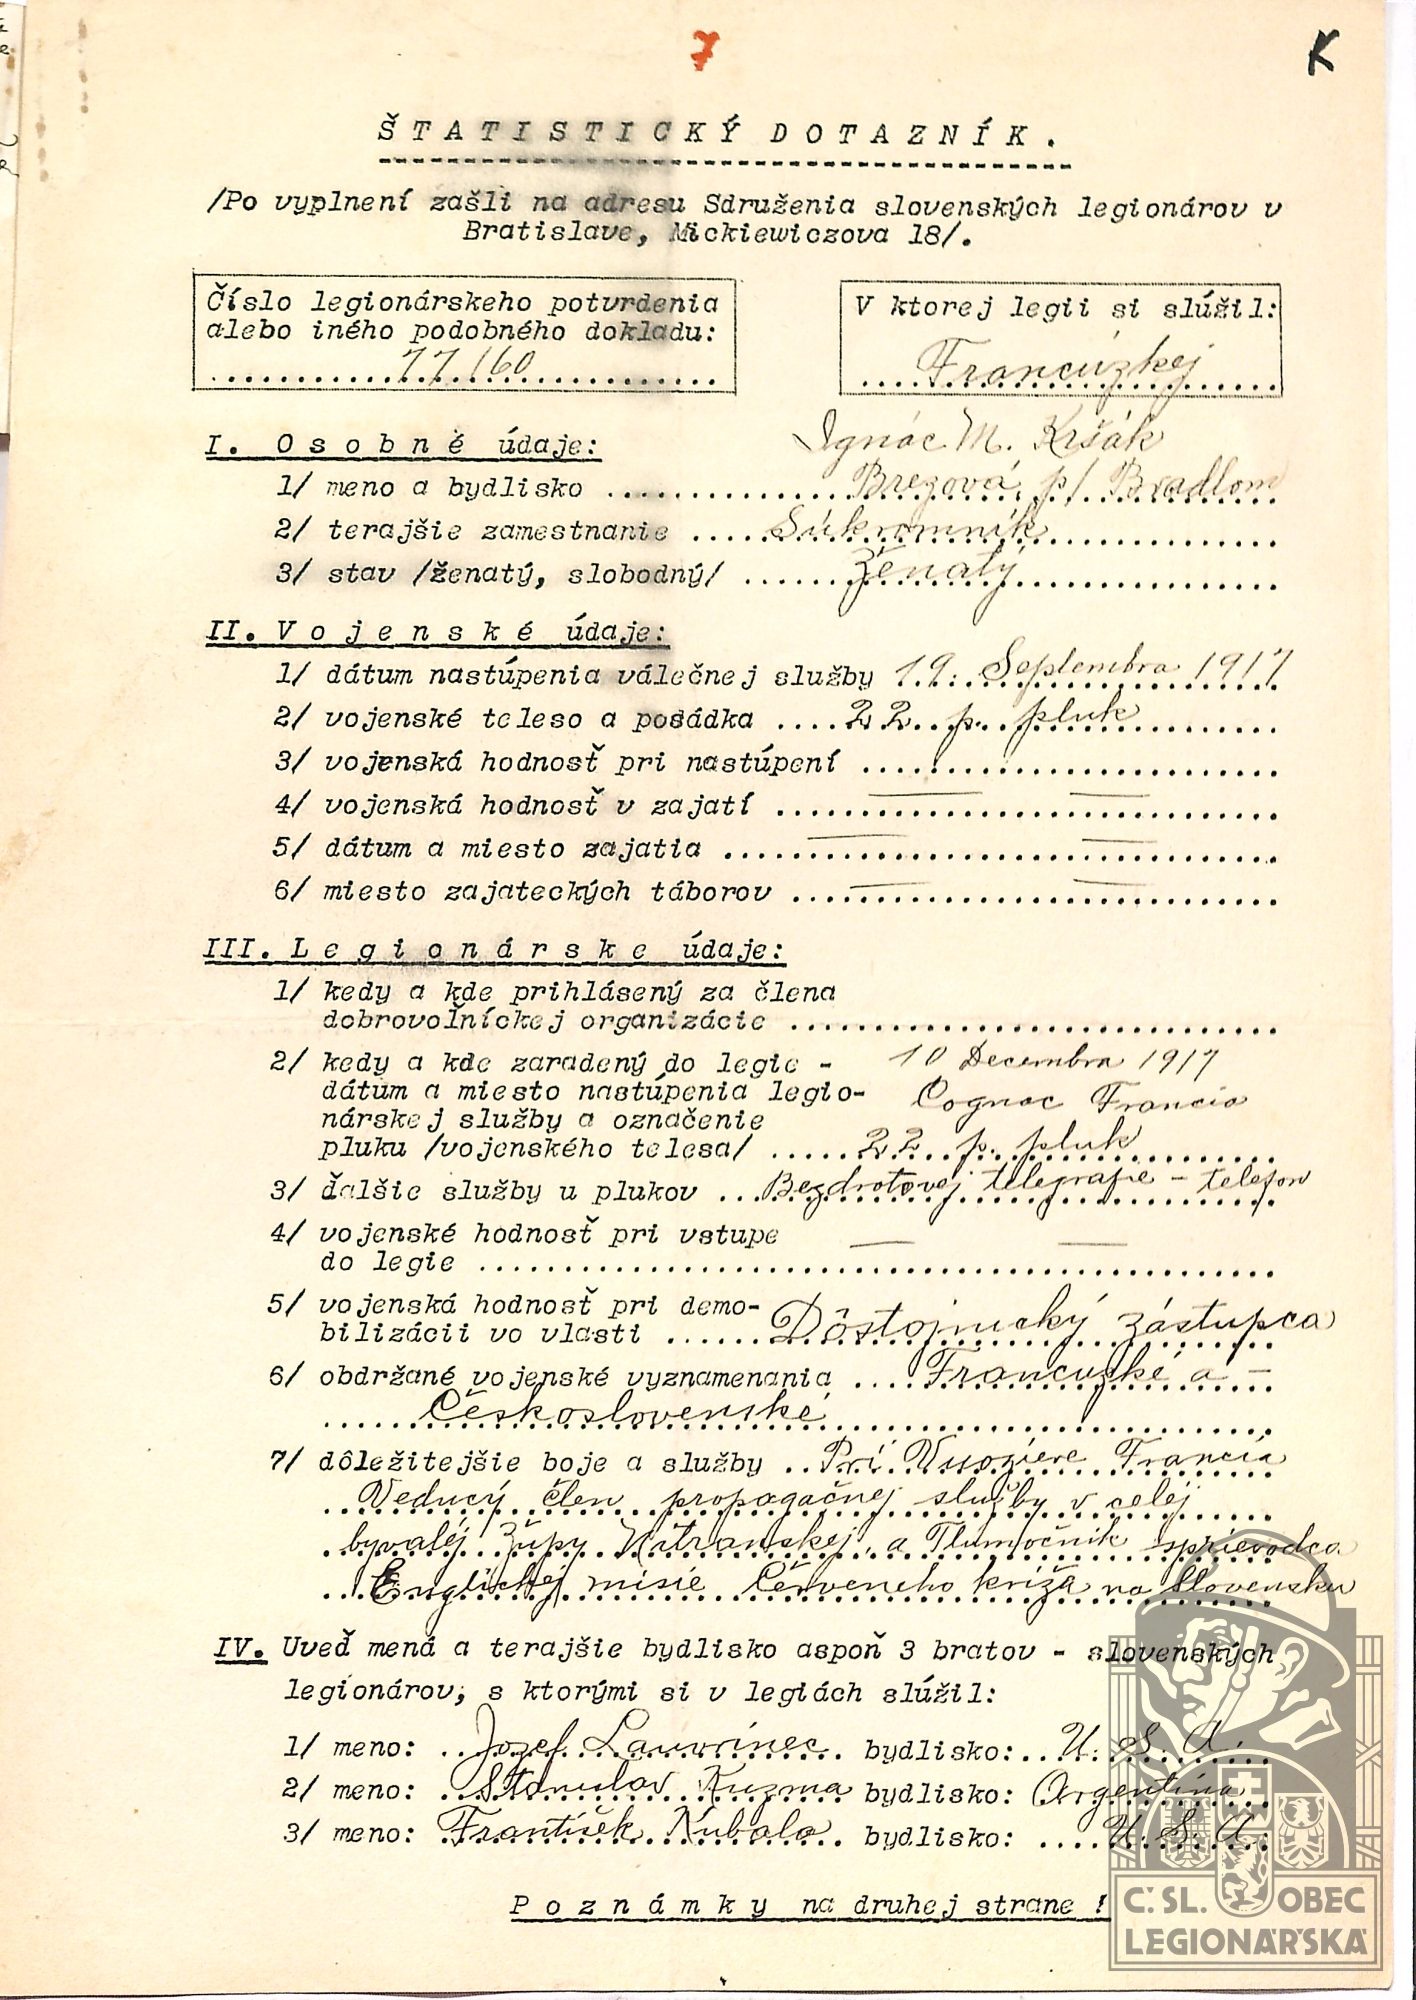 7
K
ŠTATISTICKÝ DOTAZNÍK.
/Po vyplnení zašli na adresu Sdruženia slovenských legionárov v
Bratislave, Mickiewiczova 18/.
Číslo legionárskeho potvrdenia
alebo iného podobného dokladu:
77160
V ktorej legii si slúžil:
Francúzkej
I. Osobné údaje:
Ignác M. Kršák
1/ meno a bydlisko Brezová p/ Bradlom
2/ terajšie zamestnanie Súkromník
3/ stav /ženatý, slobodný/ Ženatý
II. Vojenské údaje:
1/ dátum nastúpenia válečnej služby 19. Septembra 1917
2/ vojenské teleso a posádka 22 p. pluk
3/ vojenská hodnosť pri nastúpení
4/ vojenská hodnosť v zajatí
5/ dátum a miesto zajatia
6/ miesto zajateckých táborov
III. Legionárske údaje:
1/ kedy a kde prihlásený za člena
dobrovoľníckej organizácie
2/ kedy a kde zaradený do legie - 10 Decembra 1917
dátum a miesto nastúpenia legio- Cognac Francia
nárskej služby a označenie
pluku /vojenského telesa/ 22 p. pluk
3/ ďalšie služby u plukov Bezdrotovej telegrafie - telefon
4/ vojenské hodnosť pri vstupe
do legie
5/ vojenská hodnosť pri demo-
bilizácii vo vlasti Dôstojnucký zástupca
6/ obdržané vojenské vyznamenania Francuzké a -
Československé
7/ dôležitejšie boje a služby Pri Vuoziere Francia
Veducý člen propagačnej služby v celej
byvalej Župy Nitranskej, a Tlumočník sprievodca
Englickej misie Červeneho kríža na Slovensku
IV. Uveď mená a terajšie bydlisko aspoň 3 bratov - slovenských
legionárov, s ktorými si v legiách slúžil:
1/ meno: Jozef Lauvrinec bydlisko: U. S. A.
2/ meno: Stanislav Kuzma bydlisko: Argentina
3/ meno: František Kubala bydlisko: U. S. A.
Poznámky na druhej strane!
Č.SL. OBEC
LEGIONÁŘSKÁ